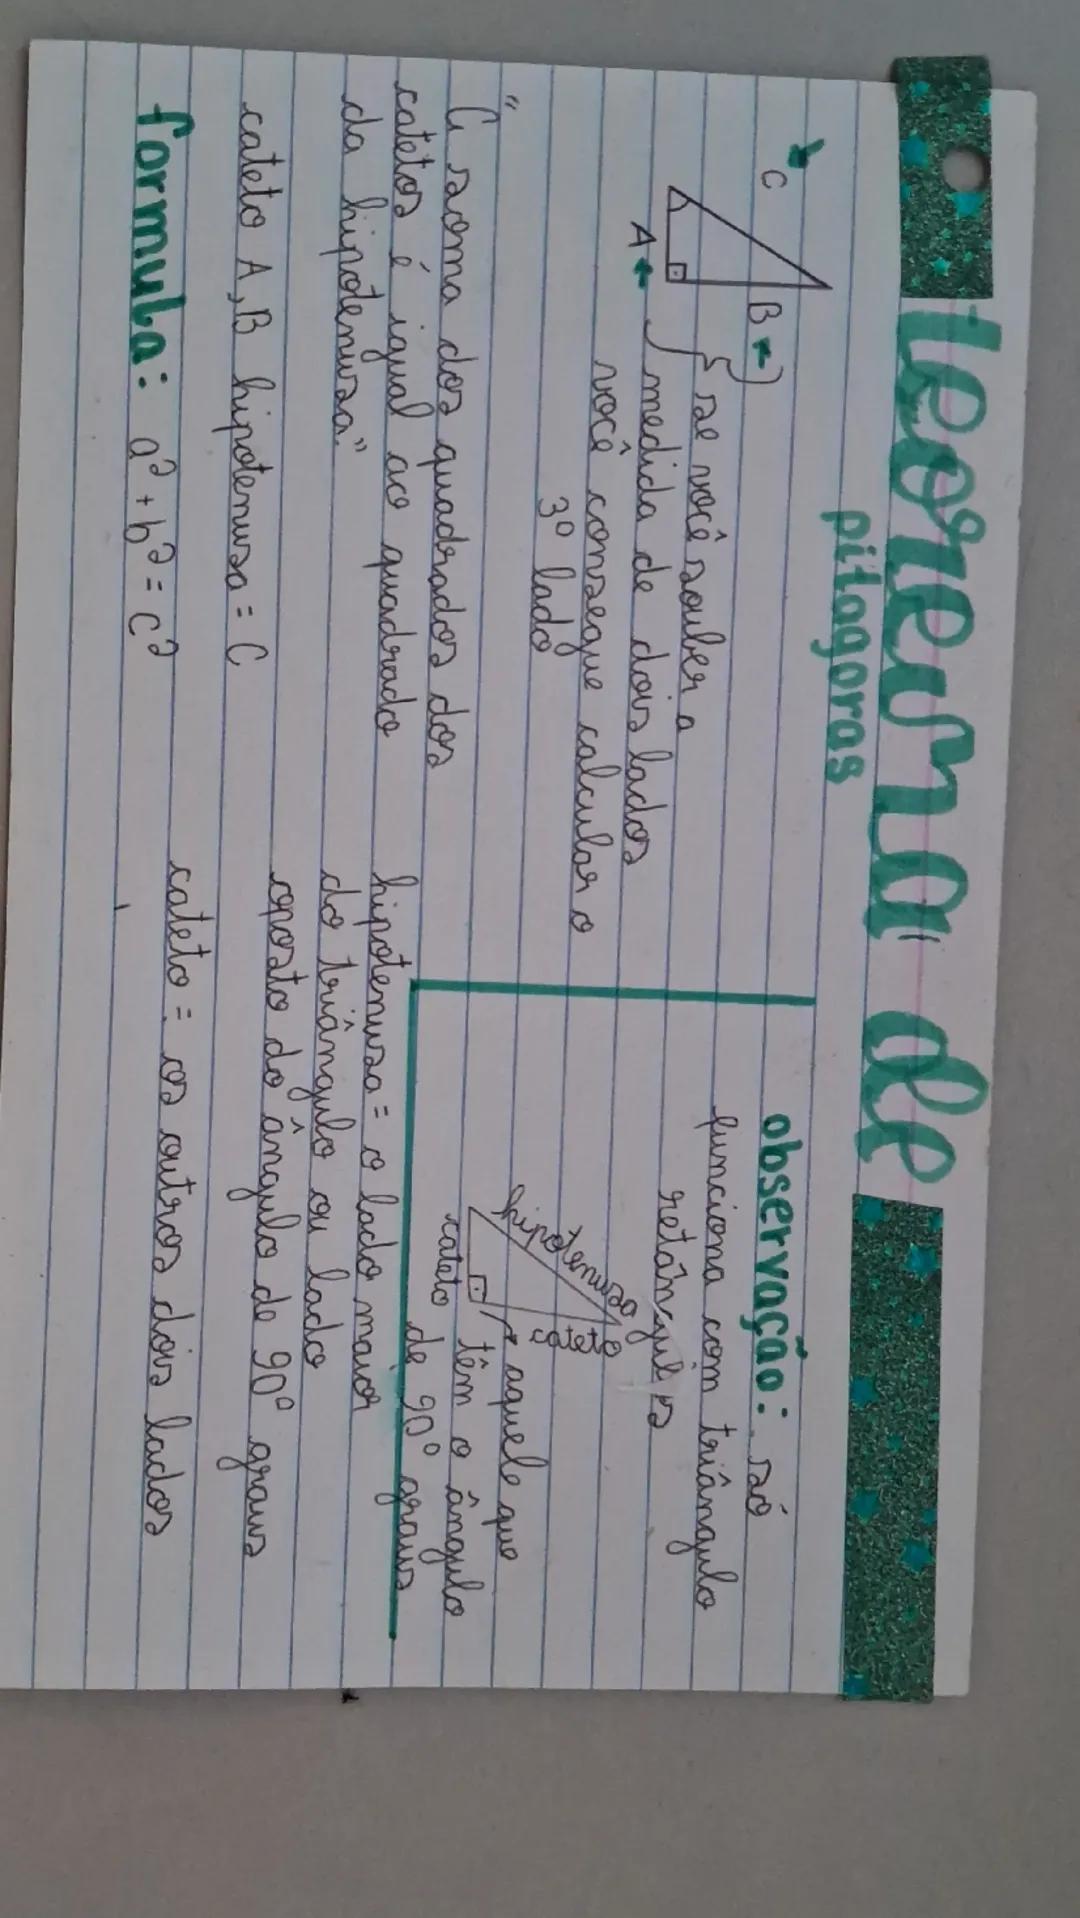 teorema de
pitagoras
C
B
A
se você souber a
medida de dois lados
você consegue calcular o
3º lado
"A soma dos quadrados dos
catetos é igual ao quadrado
da hipotenusa."
cateto A, B hipotenusa = C
formula: a² + b² = c²
observação: só
funciona com triângulo
retângulos
hipotenusa
cateto
cateto
aquele que
têm o ângulo
de 90° graus
hipotenusa = o lado maior
do triângulo ou lado
oposto do ângulo de 90° graus
cateto = os outros dois lados